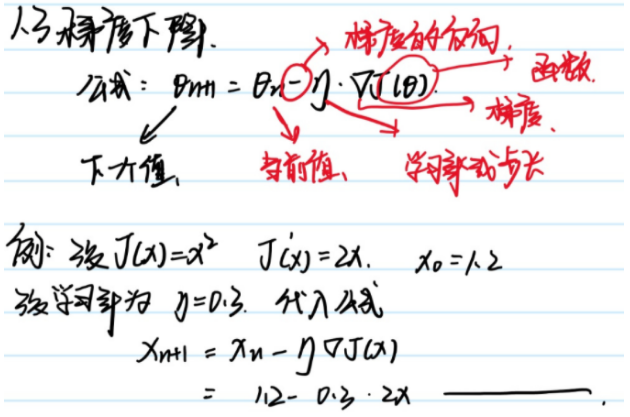 1.3 梯度下降.
梯度的负方向.
公式: θn+1 = θn - η · ∇J(θ).
函数.
梯度.
下一个值.
当前值.
学习率或步长
例: 设 J(x)=x² J'(x)=2x. x₀=1.2
设学习率为 η=0.3. 代入公式
xn+1 = xn - η∇J(x)
= 1.2 - 0.3 · 2x